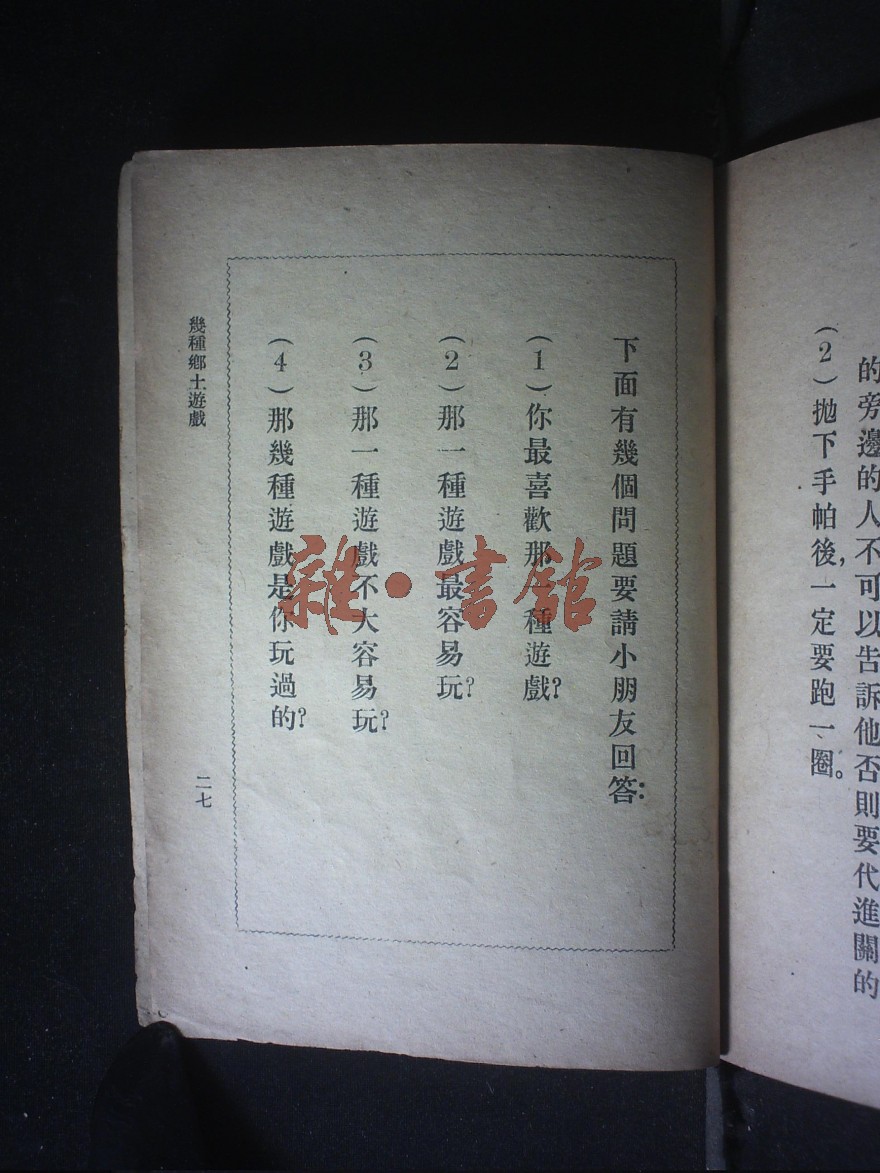 的旁邊的人不可以告訴他否則要代進關的
(2)拋下手帕後,一定要跑一圈。
下面有幾個問題要請小朋友回答:
(1)你最喜歡那一種遊戲?
(2)那一種遊戲最容易玩?
(3)那一種遊戲不大容易玩?
(4)那幾種遊戲是你玩過的?
幾種鄉土遊戲
二七
雜·書館